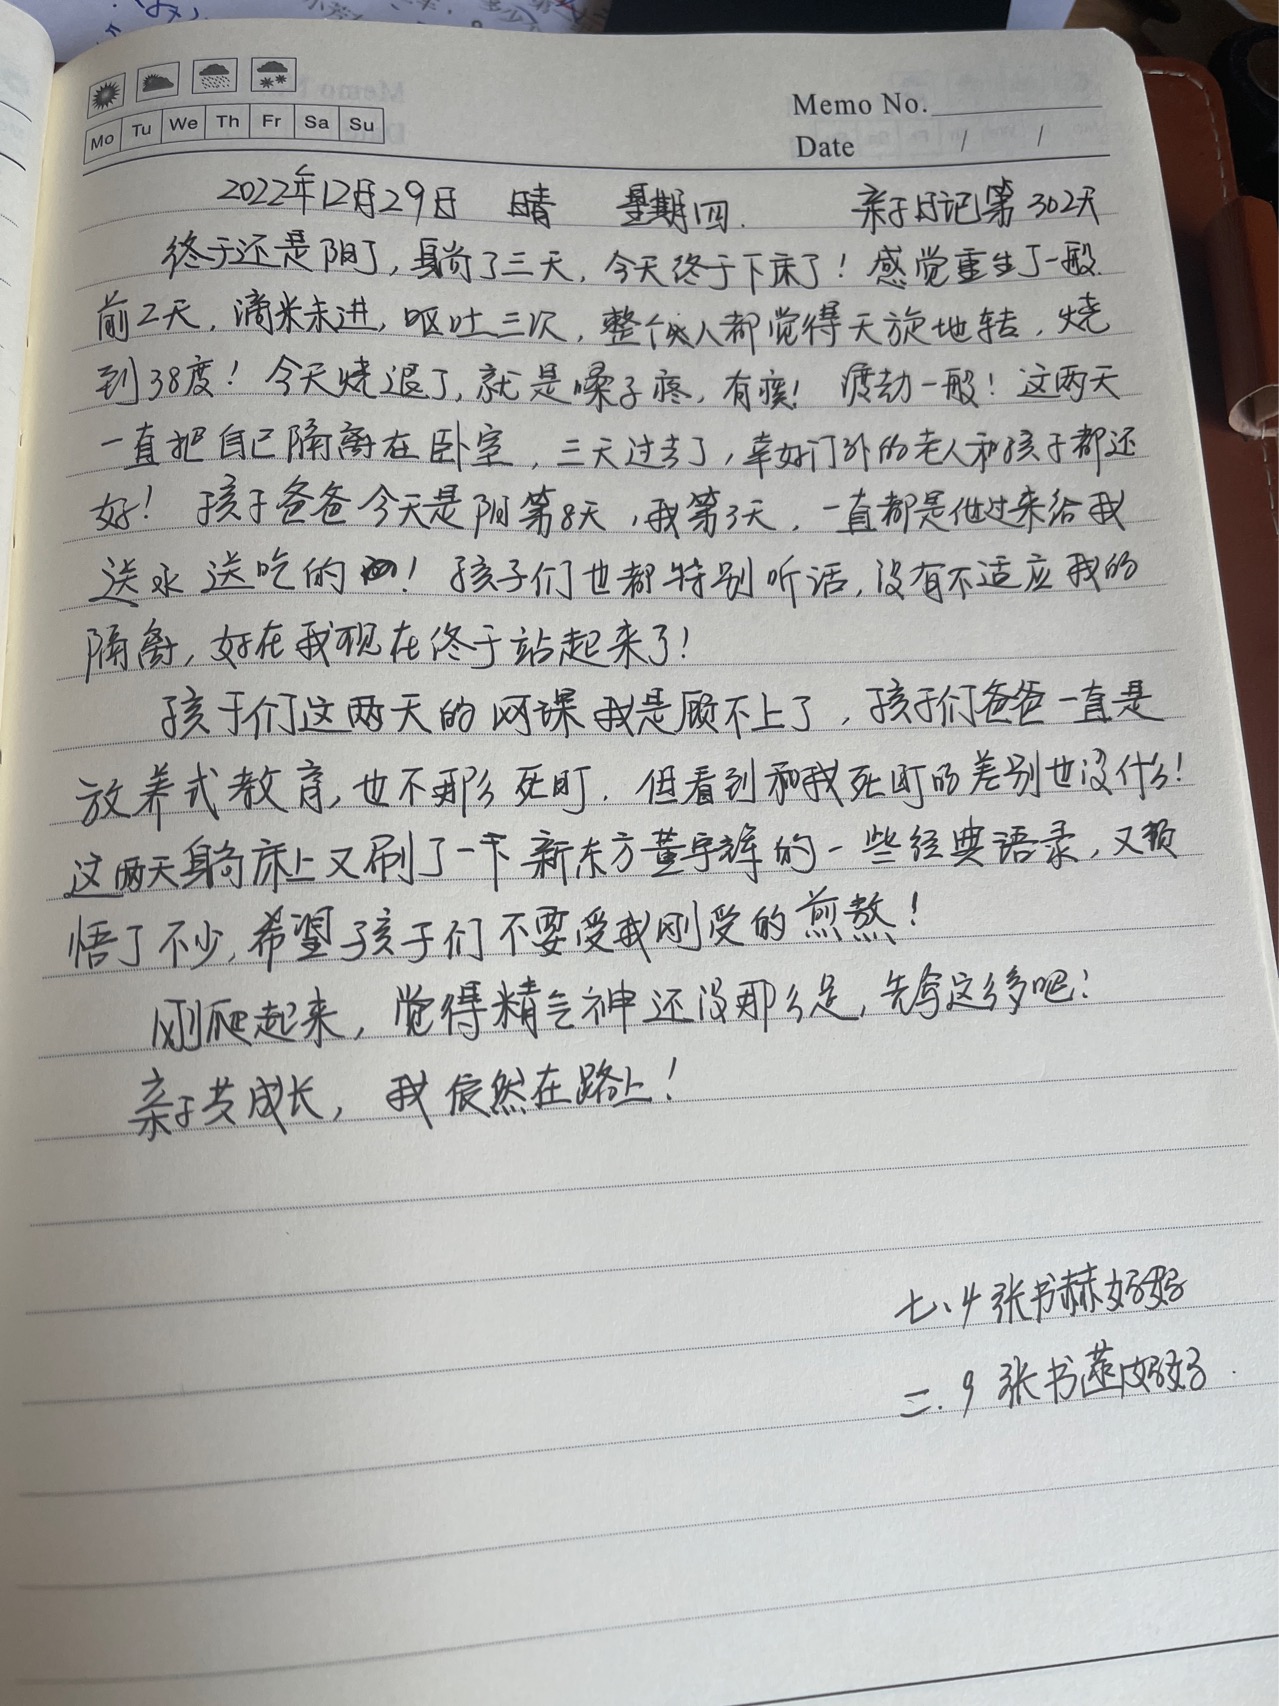 Mo Tu We Th Fr Sa Su
Memo No.
Date / /
2022年12月29日 晴 星期四. 亲子日记第302天
终于还是阳了,躺了三天,今天终于下床了!感觉重生了一般.
前2天,滴米未进,呕吐三次,整个人都觉得天旋地转,烧
到38度!今天烧退了,就是嗓子疼,有痰!疲劳一般!这两天
一直把自己隔离在卧室,三天过去了,幸好门外的老人和孩子都还
好!孩子爸爸今天是阳第8天,我第3天,一直都是他过来给我
送水送吃的!孩子们也都特别听话,没有不适应我的
隔离,好在我现在终于站起来了!
孩子们这两天的网课我是顾不上了,孩子们爸爸一直是
放养式教育,也不那么死盯.但看到和我死盯的差别也没什么!
这两天躺床上又刷了一下新东方董宇辉的一些经典语录,又顿
悟了不少,希望孩子们不要受我刚受的煎熬!
刚爬起来,觉得精气神还没那么足,先写这么多吧!
亲子共成长,我依然在路上!
七、4 张书赫妈妈
二.9 张书燕妈妈.